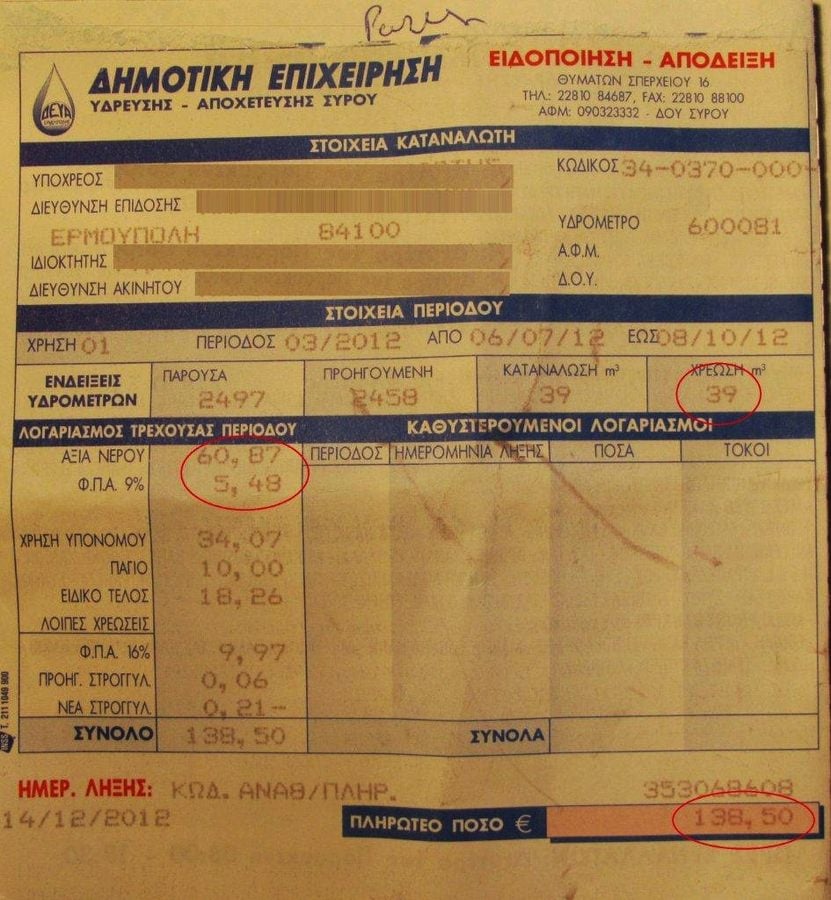 ΔΗΜΟΤΙΚΗ ΕΠΙΧΕΙΡΗΣΗ
ΥΔΡΕΥΣΗΣ - ΑΠΟΧΕΤΕΥΣΗΣ ΣΥΡΟΥ
ΔΕΥΑ
ΕΙΔΟΠΟΙΗΣΗ - ΑΠΟΔΕΙΞΗ
ΘΥΜΑΤΩΝ ΣΠΕΡΧΕΙΟΥ 16
ΤΗΛ.: 22810 84687, FAX: 22810 88100
ΑΦΜ: 090323332 - ΔΟΥ ΣΥΡΟΥ
ΣΤΟΙΧΕΙΑ ΚΑΤΑΝΑΛΩΤΗ
ΥΠΟΧΡΕΟΣ
ΚΩΔΙΚΟΣ 34-0370-000-
ΔΙΕΥΘΥΝΣΗ ΕΠΙΔΟΣΗΣ
ΕΡΜΟΥΠΟΛΗ 84100
ΥΔΡΟΜΕΤΡΟ 600081
ΙΔΙΟΚΤΗΤΗΣ
Α.Φ.Μ.
ΔΙΕΥΘΥΝΣΗ ΑΚΙΝΗΤΟΥ
Δ.Ο.Υ.
ΣΤΟΙΧΕΙΑ ΠΕΡΙΟΔΟΥ
ΧΡΗΣΗ 01 ΠΕΡΙΟΔΟΣ 03/2012 ΑΠΟ 06/07/12 ΕΩΣ 08/10/12
ΕΝΔΕΙΞΕΙΣ ΥΔΡΟΜΕΤΡΩΝ
ΠΑΡΟΥΣΑ ΠΡΟΗΓΟΥΜΕΝΗ ΚΑΤΑΝΑΛΩΣΗ m³ ΧΡΕΩΣΗ m³
2497 2458 39 39
ΛΟΓΑΡΙΑΣΜΟΣ ΤΡΕΧΟΥΣΑΣ ΠΕΡΙΟΔΟΥ ΚΑΘΥΣΤΕΡΟΥΜΕΝΟΙ ΛΟΓΑΡΙΑΣΜΟΙ
ΑΞΙΑ ΝΕΡΟΥ 60,87 ΠΕΡΙΟΔΟΣ ΗΜΕΡΟΜΗΝΙΑ ΛΗΞΗΣ ΠΟΣΑ ΤΟΚΟΙ
Φ.Π.Α. 9% 5,48
ΧΡΗΣΗ ΥΠΟΝΟΜΟΥ 34,07
ΠΑΓΙΟ 10,00
ΕΙΔΙΚΟ ΤΕΛΟΣ 18,26
ΛΟΙΠΕΣ ΧΡΕΩΣΕΙΣ
Φ.Π.Α. 16% 9,97
ΠΡΟΗΓ. ΣΤΡΟΓΓΥΛ. 0,06
ΝΕΑ ΣΤΡΟΓΓΥΛ. 0,21-
ΣΥΝΟΛΟ 138,50 ΣΥΝΟΛΑ
ΗΜΕΡ. ΛΗΞΗΣ: ΚΩΔ. ΑΝΑΘ/ΠΛΗΡ. 353068608
14/12/2012 ΠΛΗΡΩΤΕΟ ΠΟΣΟ € 138,50